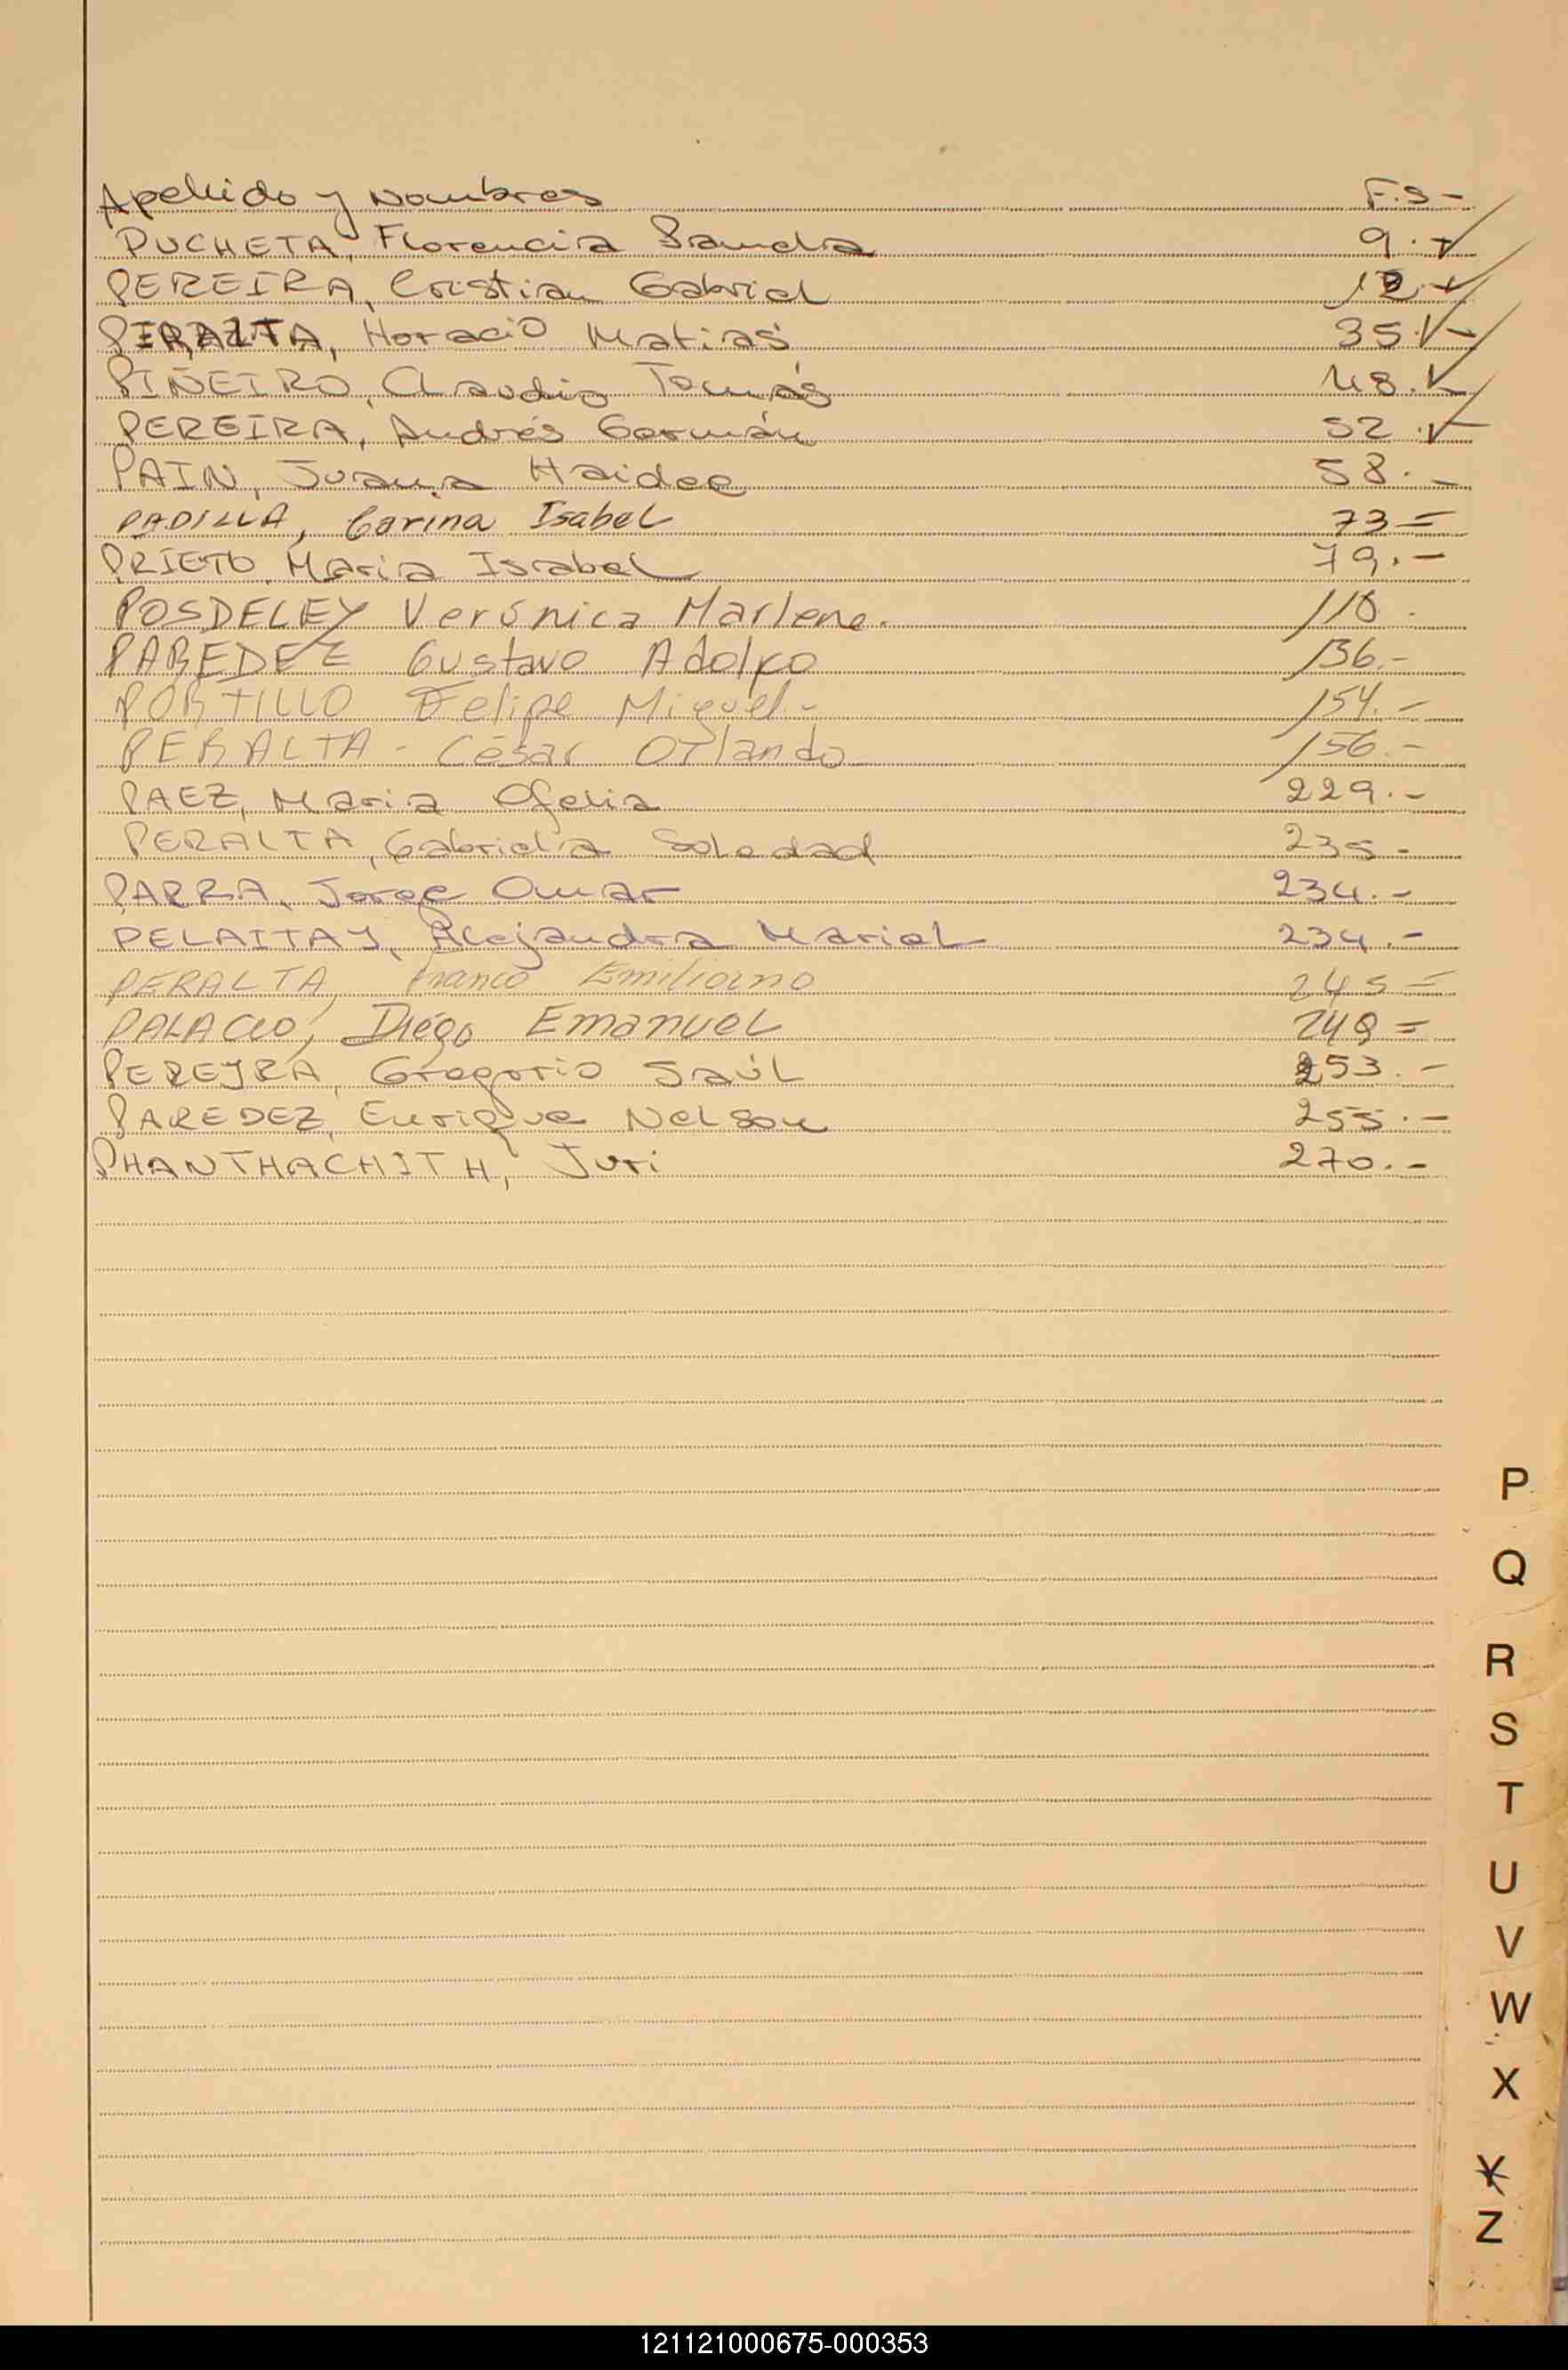 Apellido y Nombres F.S-
PUCHETA, Florencia Sandra 9.-
PEREIRA, Cristian Gabriel 12.-
PERALTA, Horacio Matias 35.-
PIÑEIRO, Claudio Tomás 48.-
PEREIRA, Andrés Germán 52.-
PAIN, Juana Haidee 58.-
PADILLA, Carina Isabel 73=
PRIETO, Maria Isabel 79.-
POSDELEY Verónica Marlene. 118.
PAREDEZ Gustavo Adolfo 136.-
PORTILLO Felipe Miguel.- 154.-
PERALTA - César Orlando 156.-
PAEZ, Maria Ofelia 229.-
PERALTA, Gabriela Soledad 235-
PARRA, Jorge Omar 234.-
PELAITAY, Alejandra Mariel 234.-
PERALTA, Franco Emiliano 245=
PALACIO, Diego Emanuel 249=
PEREYRA, Gregorio Saúl 253.-
PAREDEZ, Enrique Nelson 255.-
PHANTHACHITH, Juri 270.-
P
Q
R
S
T
U
V
W
X
Y
Z
121121000675-000353